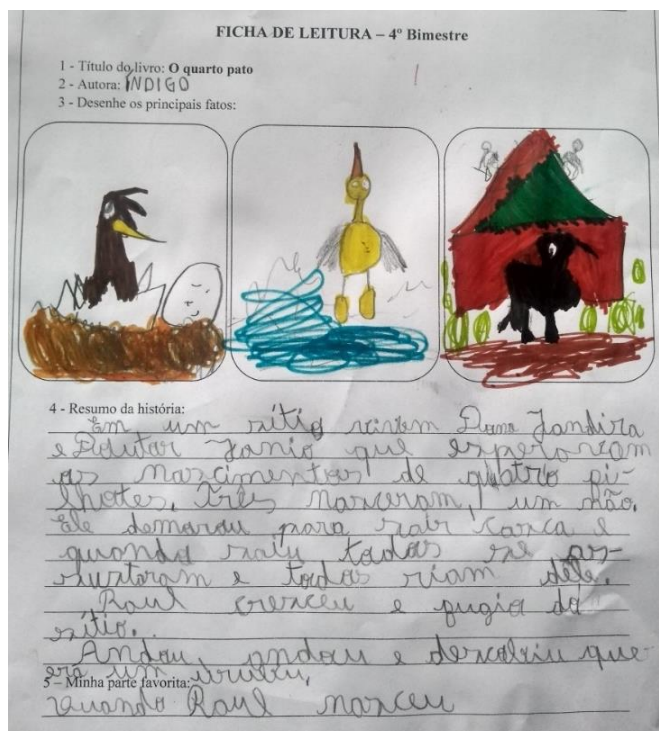 FICHA DE LEITURA – 4º Bimestre
1 - Título do livro: O quarto pato
2 - Autora: ÍNDIGO
3 - Desenhe os principais fatos:
4 - Resumo da história:
Em um sítio vivem Dona Jandira
e Doutor Janio que esperavam
os nascimentos de quatro fi-
lhotes. Três nasceram, um não.
Ele demorou para sair casca e
quando saiu todos se as-
sustaram e todos riam dele.
Raul cresceu e fugio do
sítio.
Andou, andou e descobriu que
era um urubu.
5 – Minha parte favorita:
Quando Raul nasceu